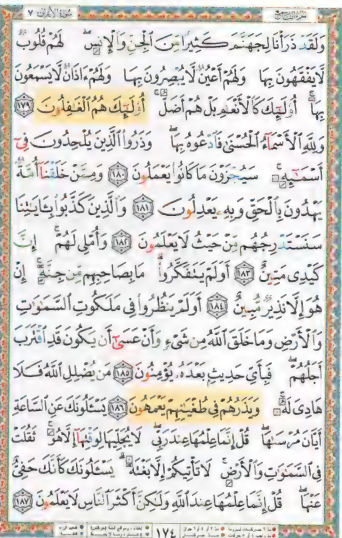 سورة الأعراف ٧
وَلَقَدْ ذَرَأْنَا لِجَهَنَّمَ كَثِيرًا مِّنَ ٱلْجِنِّ وَٱلْإِنسِ ۖ لَهُمْ قُلُوبٌ
لَّا يَفْقَهُونَ بِهَا وَلَهُمْ أَعْيُنٌ لَّا يُبْصِرُونَ بِهَا وَلَهُمْ ءَاذَانٌ لَّا يَسْمَعُونَ
بِهَآ ۚ أُو۟لَٰٓئِكَ كَٱلْأَنْعَٰمِ بَلْ هُمْ أَضَلُّ ۚ أُو۟لَٰٓئِكَ هُمُ ٱلْغَٰفِلُونَ ١٧٩
وَلِلَّهِ ٱلْأَسْمَآءُ ٱلْحُسْنَىٰ فَٱدْعُوهُ بِهَا ۖ وَذَرُوا۟ ٱلَّذِينَ يُلْحِدُونَ فِىٓ
أَسْمَٰٓئِهِۦ ۚ سَيُجْزَوْنَ مَا كَانُوا۟ يَعْمَلُونَ ١٨٠ وَمِمَّنْ خَلَقْنَآ أُمَّةٌ
يَهْدُونَ بِٱلْحَقِّ وَبِهِۦ يَعْدِلُونَ ١٨١ وَٱلَّذِينَ كَذَّبُوا۟ بِـَٔايَٰتِنَا
سَنَسْتَدْرِجُهُم مِّنْ حَيْثُ لَا يَعْلَمُونَ ١٨٢ وَأُمْلِى لَهُمْ ۚ إِنَّ
كَيْدِى مَتِينٌ ١٨٣ أَوَلَمْ يَتَفَكَّرُوا۟ ۗ مَا بِصَاحِبِهِم مِّن جِنَّةٍ ۚ إِنْ
هُوَ إِلَّا نَذِيرٌ مُّبِينٌ ١٨٤ أَوَلَمْ يَنظُرُوا۟ فِى مَلَكُوتِ ٱلسَّمَٰوَٰتِ
وَٱلْأَرْضِ وَمَا خَلَقَ ٱللَّهُ مِن شَىْءٍ وَأَنْ عَسَىٰٓ أَن يَكُونَ قَدِ ٱقْتَرَبَ
أَجَلُهُمْ ۖ فَبِأَىِّ حَدِيثٍۭ بَعْدَهُۥ يُؤْمِنُونَ ١٨٥ مَن يُضْلِلِ ٱللَّهُ فَلَا
هَادِىَ لَهُۥ ۚ وَيَذَرُهُمْ فِى طُغْيَٰنِهِمْ يَعْمَهُونَ ١٨٦ يَسْـَٔلُونَكَ عَنِ ٱلسَّاعَةِ
أَيَّانَ مُرْسَىٰهَا ۖ قُلْ إِنَّمَا عِلْمُهَا عِندَ رَبِّى ۖ لَا يُجَلِّيهَا لِوَقْتِهَآ إِلَّا هُوَ ۚ ثَقُلَتْ
فِى ٱلسَّمَٰوَٰتِ وَٱلْأَرْضِ ۚ لَا تَأْتِيكُمْ إِلَّا بَغْتَةً ۗ يَسْـَٔلُونَكَ كَأَنَّكَ حَفِىٌّ
عَنْهَا ۖ قُلْ إِنَّمَا عِلْمُهَا عِندَ ٱللَّهِ وَلَٰكِنَّ أَكْثَرَ ٱلنَّاسِ لَا يَعْلَمُونَ ١٨٧
١٧٤